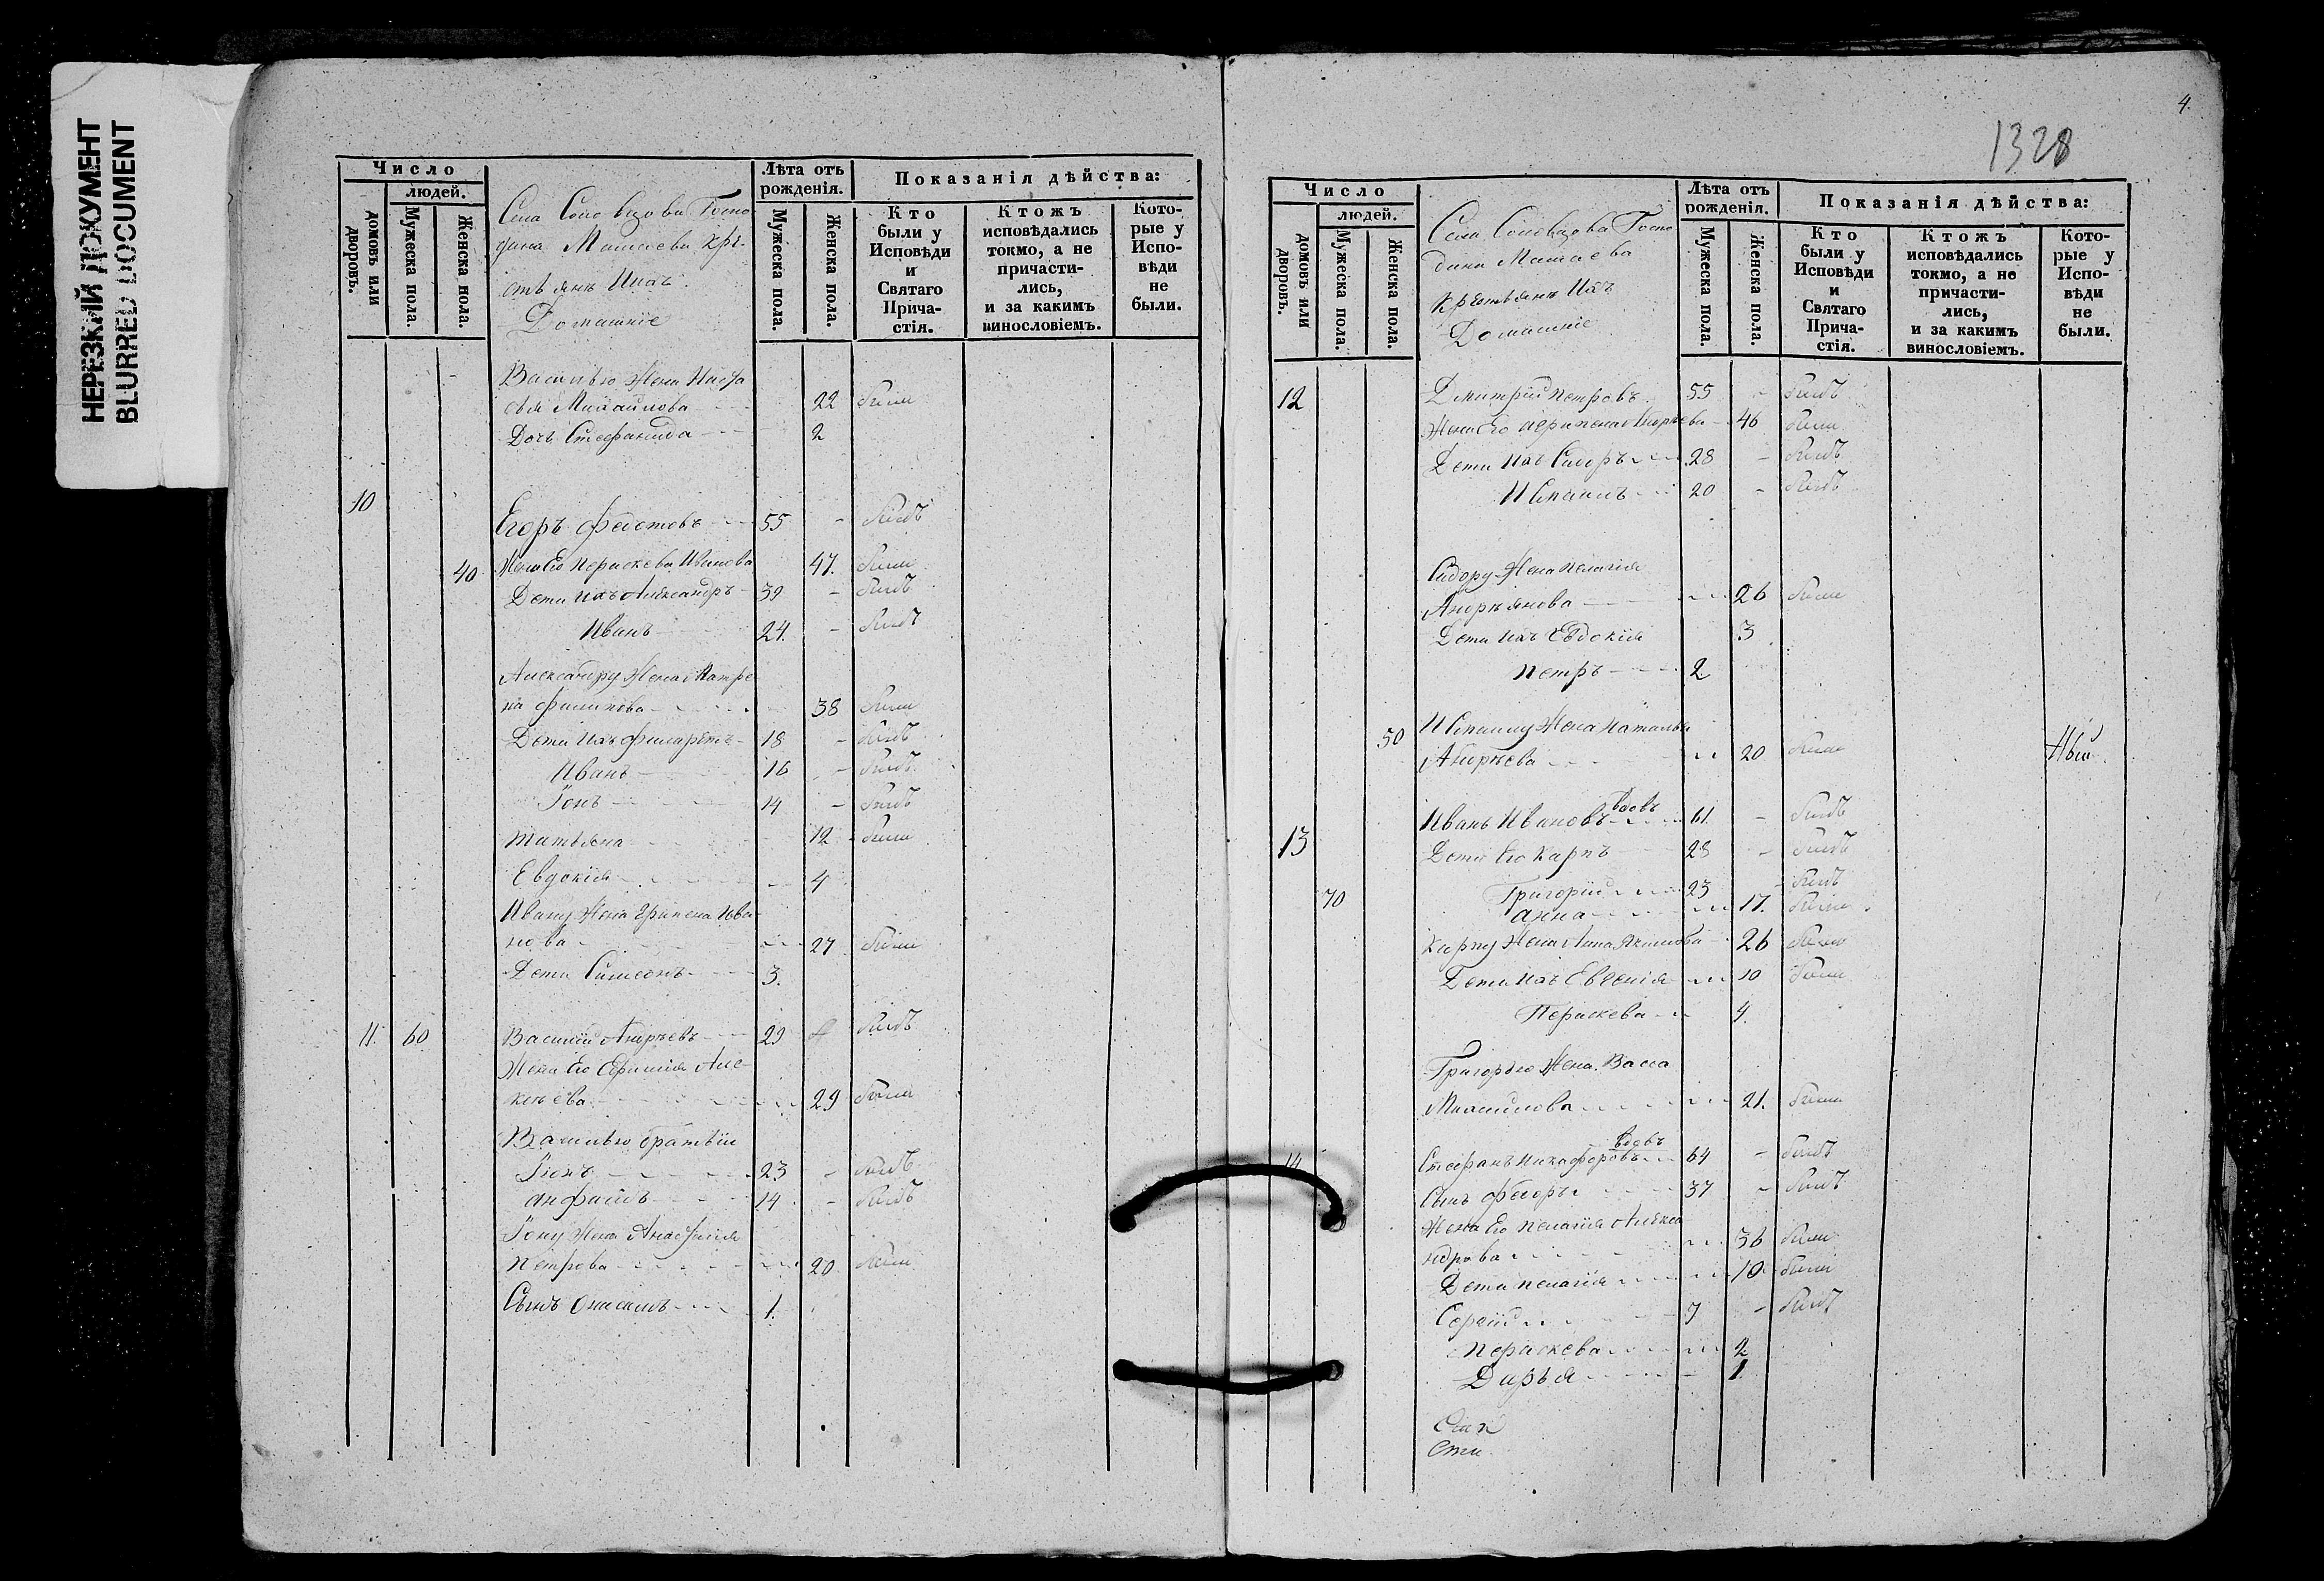 НЕРЕЗКИЙ ДОКУМЕНТ
BLURRED DOCUMENT
Число
людей.
домовъ или дворовъ.
Мужеска пола.
Женска пола.
Села Соловцова Госпо
дина Матаева кре-
стьянъ Ихъ
Домашніе
Лѣта отъ рожденія.
Мужеска пола.
Женска пола.
Показанія дѣйства:
Кто были у Исповѣди и Святаго Прича-стія.
Ктожъ исповѣдались токмо, а не причасти-лись, и за какимъ винословіемъ.
Кото-рые у Испо-вѣди не были.
Василью Жена Наста
сья Михайлова 22 была
Дочь Стефанида 2
10
Егоръ Федотовъ 55 - былъ
40 Жена Его Параскева Иванова 47. была
Дети Ихъ Александръ 39 - былъ
Иванъ 24. - былъ
Александру Жена Матре
на Филипова 38 была
Дети Ихъ Филаретъ 18 - былъ
Иванъ 16 - былъ
Іонъ 14 - былъ
Татьяна 12 была
Евдокія 4
Ивану Жена Грипена Ива
нова 27 была
Дети Симеонъ 3.
11. 60 Василій Андреевъ 29 былъ
Жена Его Ефимія Але-
ксеева 29 была
Василью братьи
Іонъ 23 - былъ
Анфимъ 14 - былъ
Іону Жена Анастасія
Петрова 20 была
Сынъ Онисимъ 1.
4.
1328
Число
людей.
домовъ или дворовъ.
Мужеска пола.
Женска пола.
Села Соловцова Госпо
дина Матаева
крестьянъ Ихъ
Домашніе
Лѣта отъ рожденія.
Мужеска пола.
Женска пола.
Показанія дѣйства:
Кто были у Исповѣди и Святаго Прича-стія.
Ктожъ исповѣдались токмо, а не причасти-лись, и за какимъ винословіемъ.
Кото-рые у Испо-вѣди не были.
12 Дмитрій Петровъ. 55 - былъ
Жена Его Агрипена Андреева 46 была
Дети Ихъ Сидоръ 28 - былъ
Исмаилъ 20 - былъ
Сидору Жена Пелагія
Андреянова 26 была
Дети Ихъ Евдокія 3
Петръ 2
50 Исмаилу Жена Наталья
Андреева 20 была
вдовъ
13 Иванъ Ивановъ 61 - былъ
Дети Его Карпъ 28 - былъ
70 Григорій 23 - былъ
Анна 17. была
Карпу Жена Анна Якимова 26 была
Дети Ихъ Евгенія 10 была
Параскева 4.
Григорью Жена Васса
Михайлова 21. была
вдовъ
14 Стефанъ Никифоровъ 64 - былъ
Сынъ Федоръ 37 - былъ
Жена Его Пелагія Алекса
ндрова 36 была
Дети Пелагія 10 была
Сергій 7 - былъ
Параскева 2
Дарья 1